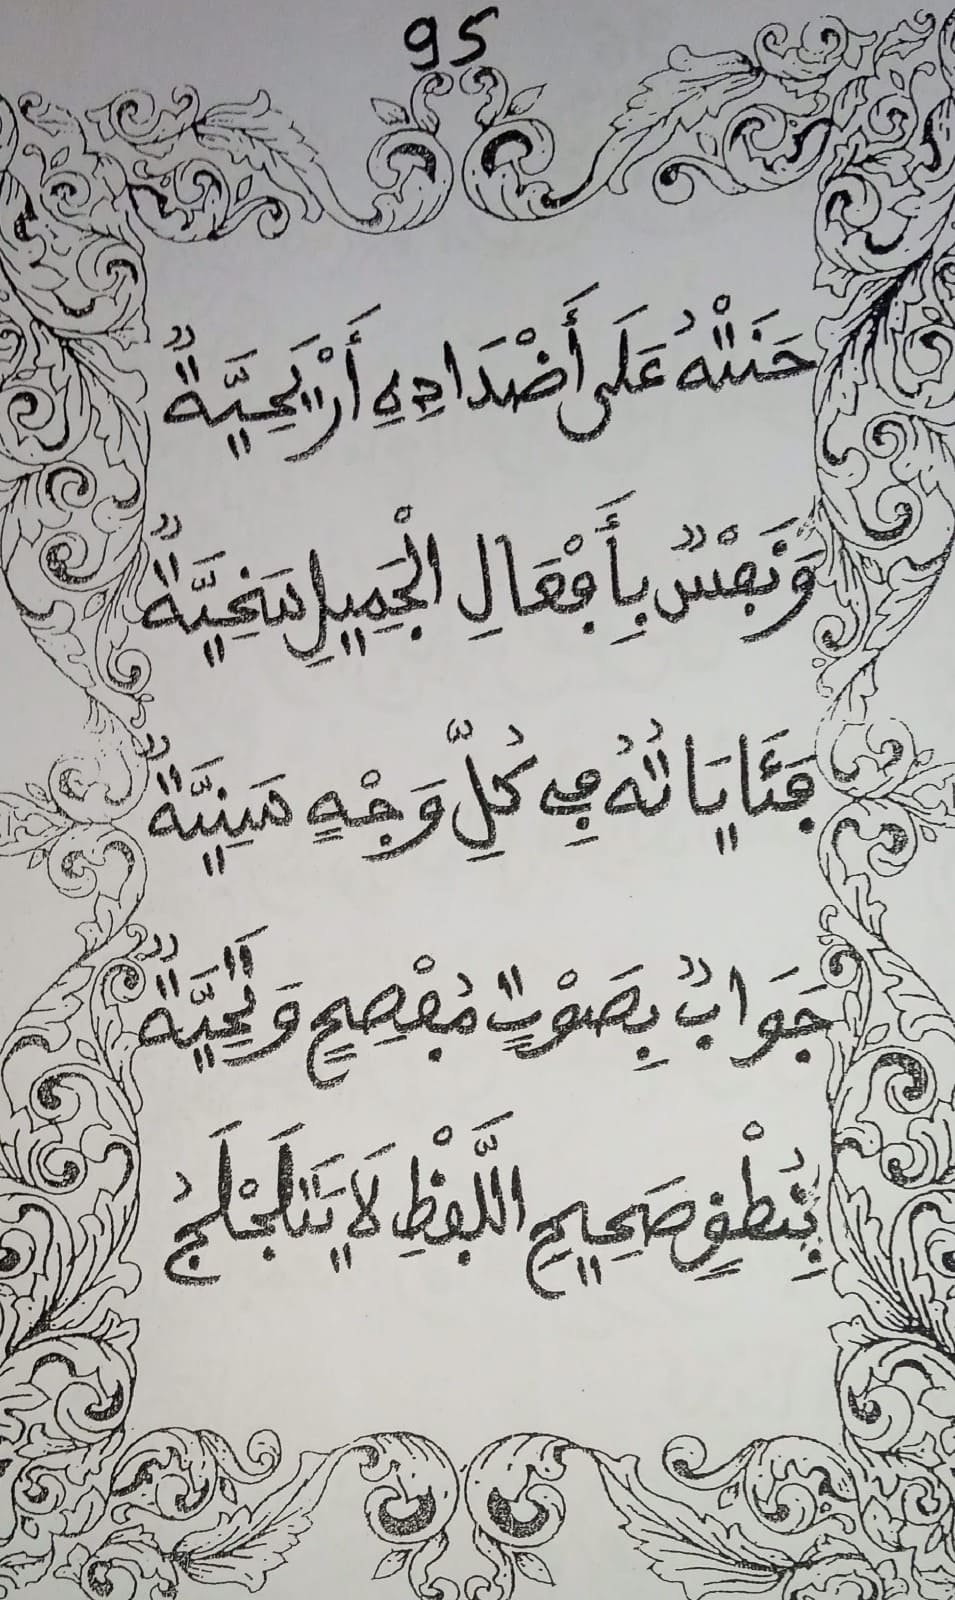 95
حَنَتْهُ عَلَى أَضْدَادِهِ أَرْيَحِيَّةٌ
وَنَفْسٌ بِأَفْعَالِ الْجَمِيلِ سَخِيَّةٌ
فَئَايَاتُهُ فِي كُلِّ وَجْهٍ سَنِيَّةٌ
جَوَابٌ بِصَوْتٍ مُفْصِحٍ وَتَحِيَّةٌ
بِنُطْقٍ صَحِيحِ اللَّفْظِ لَا يَتَلَجْلَجُ